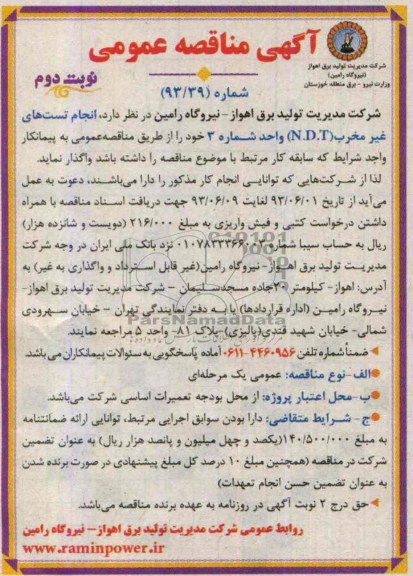 آگهی مناقصه عمومی
شرکت مدیریت تولید برق اهواز
(نیروگاه رامین)
وزارت نیرو - برق منطقه خوزستان
نوبت دوم
شماره (۹۳/۳۹)
شرکت مدیریت تولید برق اهواز - نیروگاه رامین در نظر دارد، انجام تست‌های
غیر مخرب(N.D.T) واحد شماره ۳ خود را از طریق مناقصه‌عمومی به پیمانکار
واجد شرایط که سابقه کار مرتبط با موضوع مناقصه را داشته باشد واگذار نماید.
لذا از شرکت‌هایی که توانایی انجام کار مذکور را دارا می‌باشند، دعوت به عمل
می‌آید از تاریخ ۹۳/۰۶/۰۱ لغایت ۹۳/۰۶/۰۹ جهت دریافت اسناد مناقصه با همراه
داشتن درخواست کتبی و فیش واریزی به مبلغ ۲۱۶/۰۰۰ (دویست و شانزده هزار)
ریال به حساب سیبا شماره نزد بانک ملی ایران در وجه شرکت
مدیریت تولید برق اهواز- نیروگاه رامین(غیر قابل استرداد و واگذاری به غیر) به
آدرس: اهواز- کیلومتر ۲۰جاده مسجدسلیمان - شرکت مدیریت تولید برق اهواز-
نیروگاه رامین (اداره قراردادها) یا به دفتر نمایندگی تهران - خیابان سهروردی
شمالی- خیابان شهید قندی(پالیزی)-پلاک ۸۱- واحد ۵ مراجعه نمایند.
ضمناً شماره تلفن ۴۴۶۰۹۵۶-۰۶۱۱ آماده پاسخگویی به سئوالات پیمانکاران می باشد.
الف-نوع مناقصه: عمومی یک مرحله‌ای
ب-محل اعتبار پروژه: از محل بودجه تعمیرات اساسی شرکت می‌باشد.
ج- شرایط متقاضی: دارا بودن سوابق اجرایی مرتبط، توانایی ارائه ضمانتنامه
به مبلغ ۱۴۰/۵۰۰/۰۰۰(یکصد و چهل میلیون و پانصد هزار ریال) به عنوان تضمین
شرکت در مناقصه (همچنین مبلغ ۱۰ درصد کل مبلغ پیشنهادی در صورت برنده شدن
به عنوان تضمین حسن انجام تعهدات)
حق درج ۲ نوبت آگهی در روزنامه به عهده برنده مناقصه می‌باشد.
روابط عمومی شرکت مدیریت تولید برق اهواز- نیروگاه رامین
www.raminpower.ir
ParsNamadData